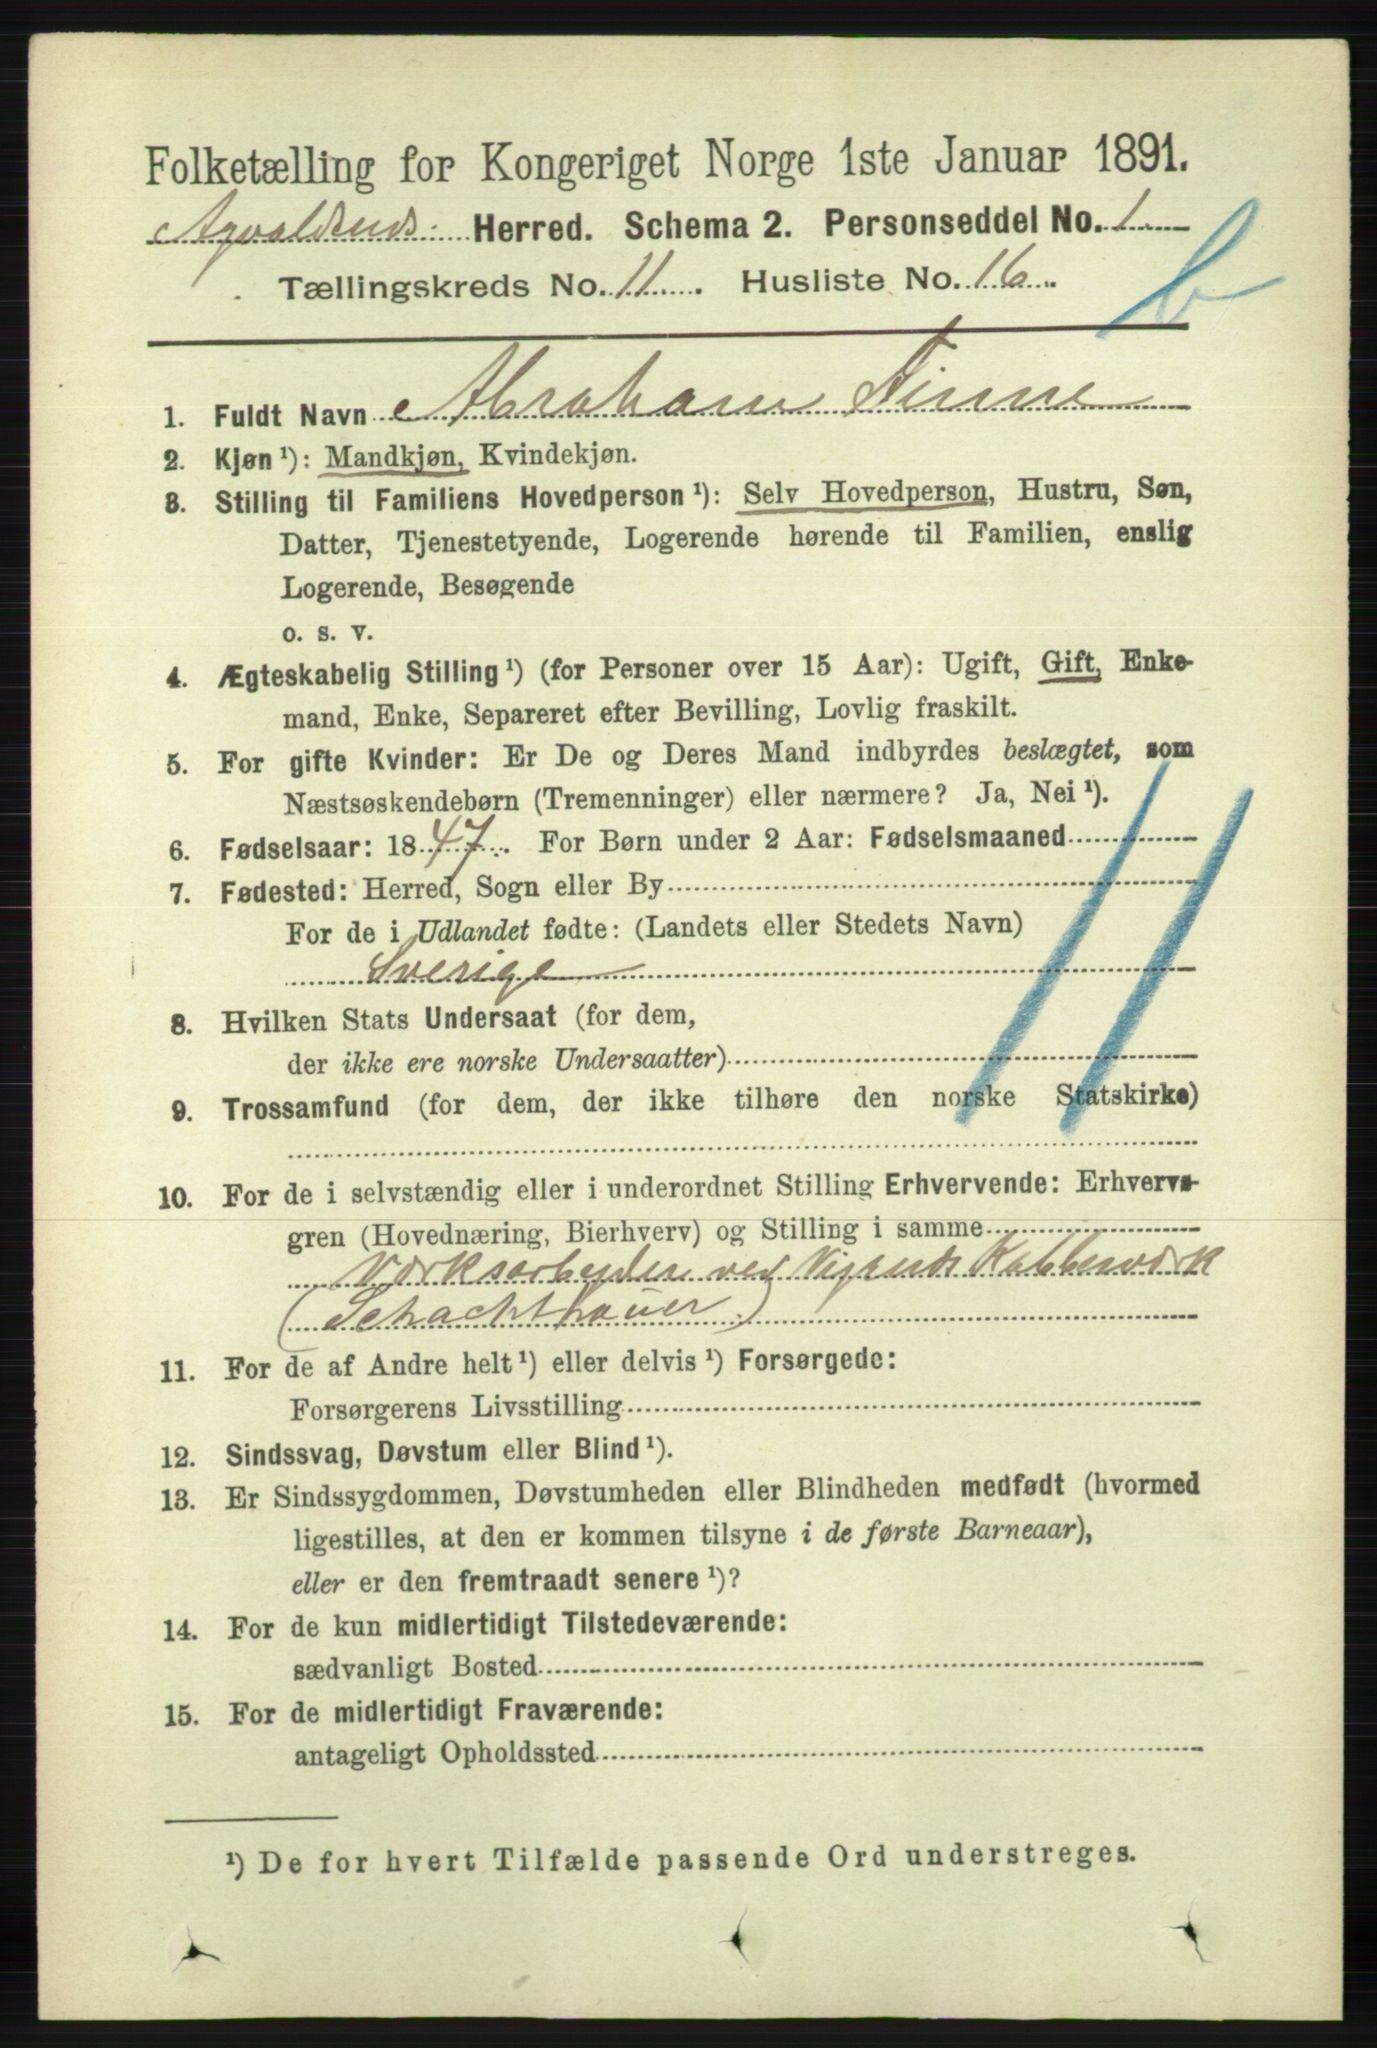 Folketælling for Kongeriget Norge 1ste Januar 1891.
Herred. Schema 2. Personseddel No. 1
Tællingskreds No. 11. Husliste No. 16.
b
1. Fuldt Navn Abraham Finne
2. Kjøn ¹): Mandkjøn, Kvindekjøn.
3. Stilling til Familiens Hovedperson ¹): Selv Hovedperson, Hustru, Søn,
Datter, Tjenestetyende, Logerende hørende til Familien, enslig
Logerende, Besøgende
o. s. v.
4. Ægteskabelig Stilling ¹) (for Personer over 15 Aar): Ugift, Gift, Enke-
mand, Enke, Separeret efter Bevilling, Lovlig fraskilt.
5. For gifte Kvinder: Er De og Deres Mand indbyrdes beslægtet, som
Næstsøskendebørn (Tremenninger) eller nærmere? Ja, Nei ¹).
6. Fødselsaar: 1847. For Børn under 2 Aar: Fødselsmaaned
7. Fødested: Herred, Sogn eller By
For de i Udlandet fødte: (Landets eller Stedets Navn)
Sverige
8. Hvilken Stats Undersaat (for dem,
der ikke ere norske Undersaatter)
11
9. Trossamfund (for dem, der ikke tilhøre den norske Statskirke)
10. For de i selvstændig eller i underordnet Stilling Erhvervende: Erhvervs-
gren (Hovednæring, Bierhverv) og Stilling i samme
Værksarbeider ved Vigsnes Kobberværk
(Schachthauer)
11. For de af Andre helt ¹) eller delvis ¹) Forsørgede:
Forsørgerens Livsstilling
12. Sindssvag, Døvstum eller Blind ¹).
13. Er Sindssygdommen, Døvstumheden eller Blindheden medfødt (hvormed
ligestilles, at den er kommen tilsyne i de første Barneaar),
eller er den fremtraadt senere ¹)?
14. For de kun midlertidigt Tilstedeværende:
sædvanligt Bosted
15. For de midlertidigt Fraværende:
antageligt Opholdssted
¹) De for hvert Tilfælde passende Ord understreges.